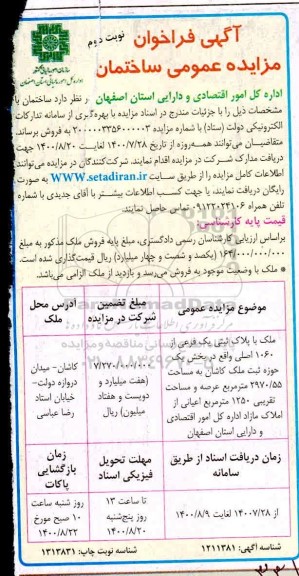 آگهی فراخوان
نوبت دوم
مزایده عمومی ساختمان
اداره کل امور اقتصادی و دارایی استان اصفهان در نظر دارد ساختمان با
مشخصات ذیل را با جزئیات مندرج در اسناد مزایده با بهره‌گیری از سامانه تدارکات
الکترونیکی دولت (ستاد) با شماره مزایده ۲۰۰۰۰۰۳۳۵۶۰۰۰۰۰۳ به فروش برساند.
متقاضیان می‌توانند همه‌روزه از تاریخ ۱۴۰۰/۷/۲۸ لغایت ۱۴۰۰/۸/۲۰ جهت
دریافت مدارک شرکت در مزایده اقدام نمایند. شرکت‌کنندگان در مزایده می‌توانند
اطلاعات کامل مزایده را از طریق سایت www.setadiran.ir به صورت
رایگان دریافت نمایند، یا جهت کسب اطلاعات بیشتر با آقای جدیدی با شماره
تلفن همراه ۰۹۱۲۲۰۲۴۱۰۶ تماس حاصل نمایند.
قیمت پایه کارشناسی:
براساس ارزیابی کارشناسان رسمی دادگستری، مبلغ پایه فروش ملک مذکور به مبلغ
۱۶۴/۰۰۰/۰۰۰/۰۰۰ (یکصد و شصت و چهار میلیارد) ریال قیمت‌گذاری شده است.
* ملک با وضعیت موجود به فروش می‌رسد و بازدید از ملک الزامی می‌باشد.
موضوع مزایده عمومی
مبلغ تضمین شرکت در مزایده
آدرس محل ملک
ملک با پلاک ثبتی یک فرعی از
۱۰۶۰ اصلی واقع در بخش یک
حوزه ثبت ملک کاشان به مساحت
۲۹۷۰/۵۵ مترمربع عرصه و مساحت
تقریبی ۱۲۵۰ مترمربع اعیانی از
املاک مازاد اداره کل امور اقتصادی
و دارایی استان اصفهان
۷/۲۷۰/۰۰۰/۰۰۰
(هفت میلیارد و
دویست و هفتاد
میلیون) ریال
کاشان- میدان
دروازه دولت-
خیابان استاد
رضا عباسی
زمان دریافت اسناد از طریق سامانه
مهلت تحویل فیزیکی اسناد
زمان بازگشایی پاکات
از ۱۴۰۰/۷/۲۸ لغایت ۱۴۰۰/۸/۹
تا ساعت ۱۳
روز پنج‌شنبه
۱۴۰۰/۸/۲۰
روز شنبه ساعت
۱۰ صبح مورخ
۱۴۰۰/۸/۲۲
شناسه آگهی: ۱۲۱۱۳۸۱
شناسه نوبت چاپ: ۱۳۱۳۸۳۱